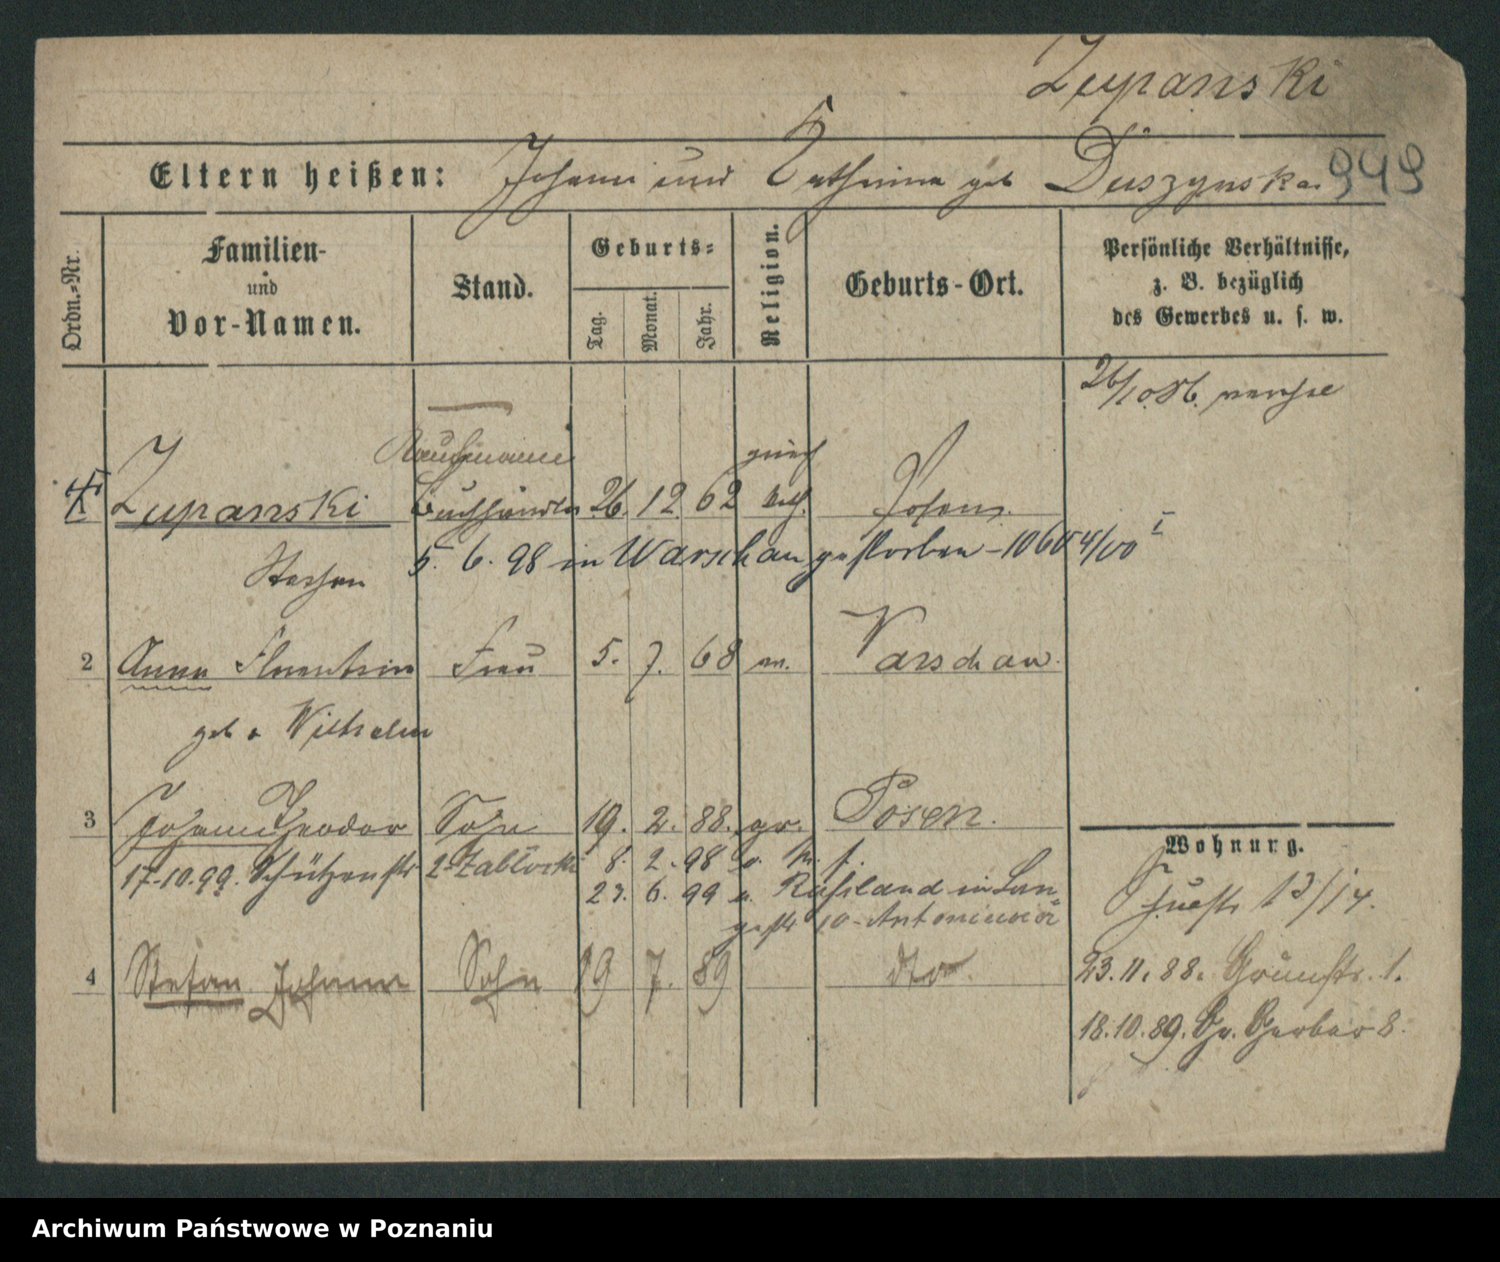 Zupanski
Eltern heißen: Johann und Catharina geb Duszynska 949
Ordn.-Nr.
Familien-
und
Vor-Namen.
Stand.
Geburts-
Tag. Monat. Jahr.
Religion.
Geburts-Ort.
Persönliche Verhältnisse,
z. B. bezüglich
des Gewerbes u. s. w.
26/10.86.
Kaufmann griech
Zupanski Buchhändler 26. 12 62 kath. Posen.
5. 6. 98 in Warschau gestorben - 10605 4/00 I
Stephan
2 Anna Florentine Frau 5. 7. 68 Warschau.
geb. Wilhelm
3 Johann Theodor Sohn 19. 2. 88. gr. Posen.
17.10.99. Schützenstr 2 Zablocki 8. 2. 98 v.
23. 6. 99 n. Rußland in Lan-
gestr 10 - Antoniewicz
4 Stefan Johann Sohn 19 7. 89 dto.
Wohnung.
13/14.
23.11.88. Grünstr. 1.
18.10.89. Gr. Gerber 8.
Archiwum Państwowe w Poznaniu